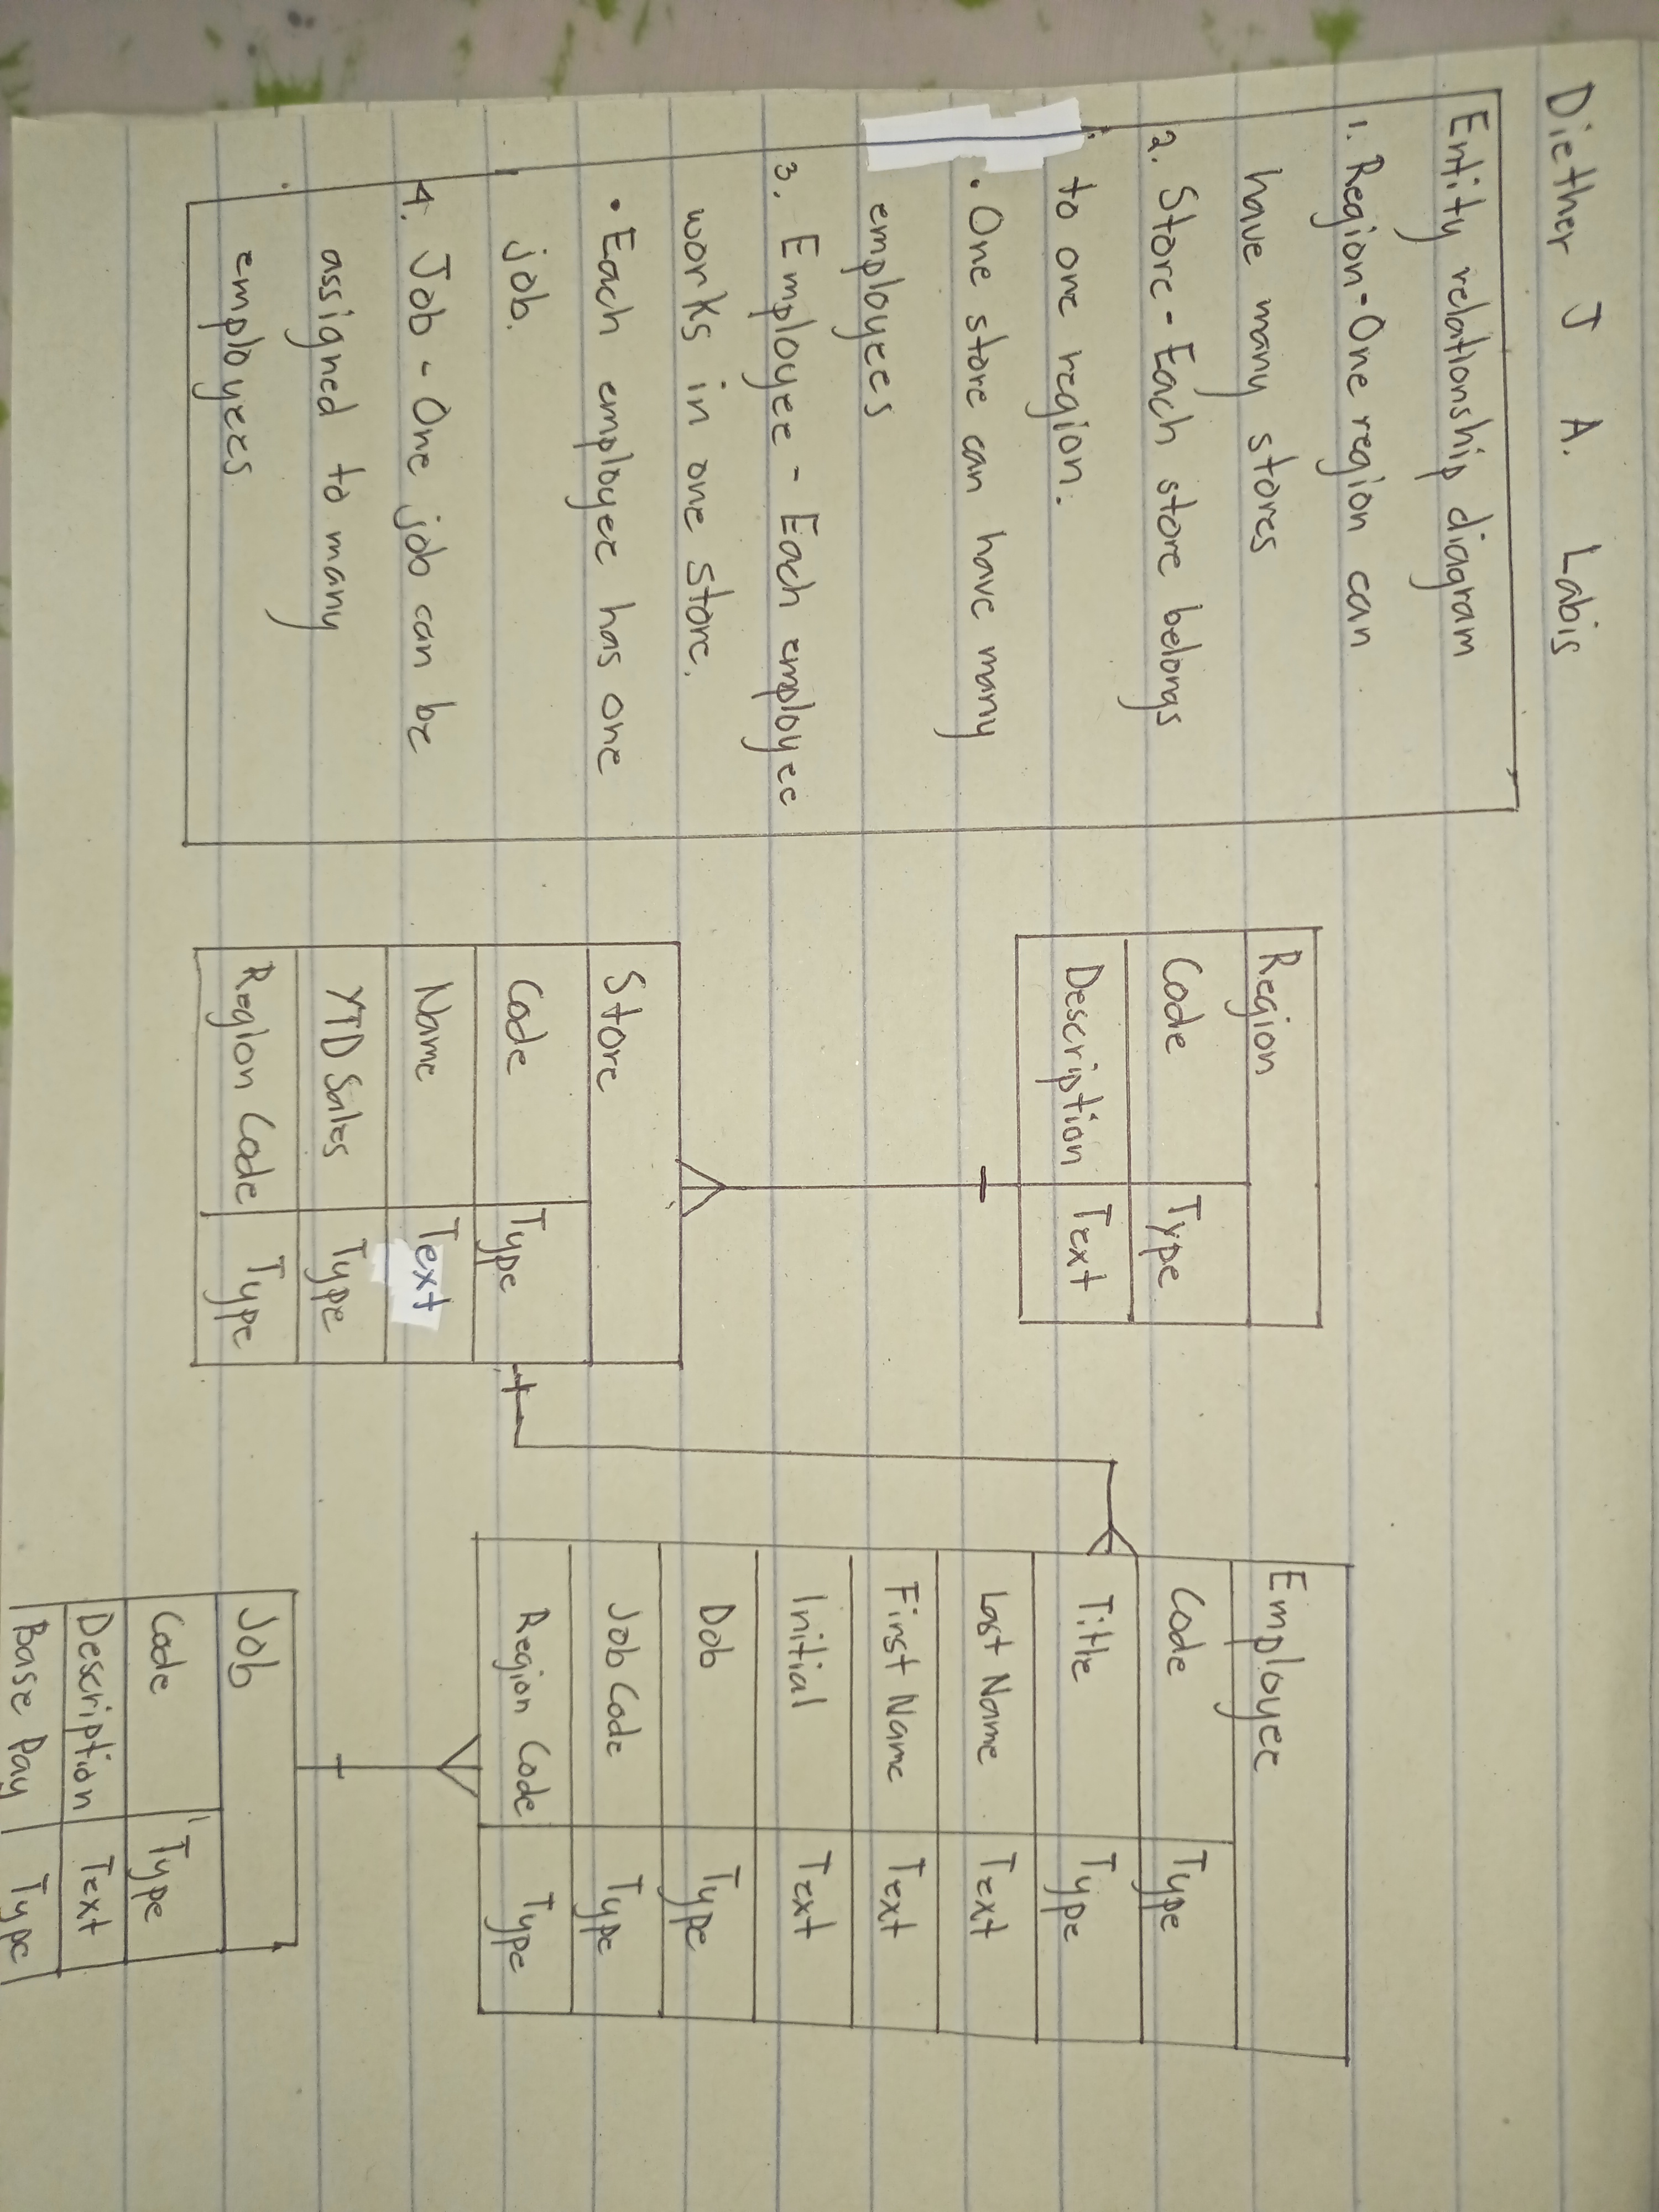 Diether J A. Labis
Entity relationship diagram
1. Region - One region can
have many stores
2. Store - Each store belongs
to one region.
• One store can have many
employees
3. Employee - Each employee
works in one store.
• Each employee has one
job.
4. Job - One job can be
assigned to many
employees
Region
Code Type
Description Text
Store
Code Type
Name Text
YTD Sales Type
Region Code Type
Employee
Code Type
Title Type
Last Name Text
First Name Text
Initial Text
Dob Type
Job Code Type
Region Code Type
Job
Code Type
Description Text
Base Pay Type